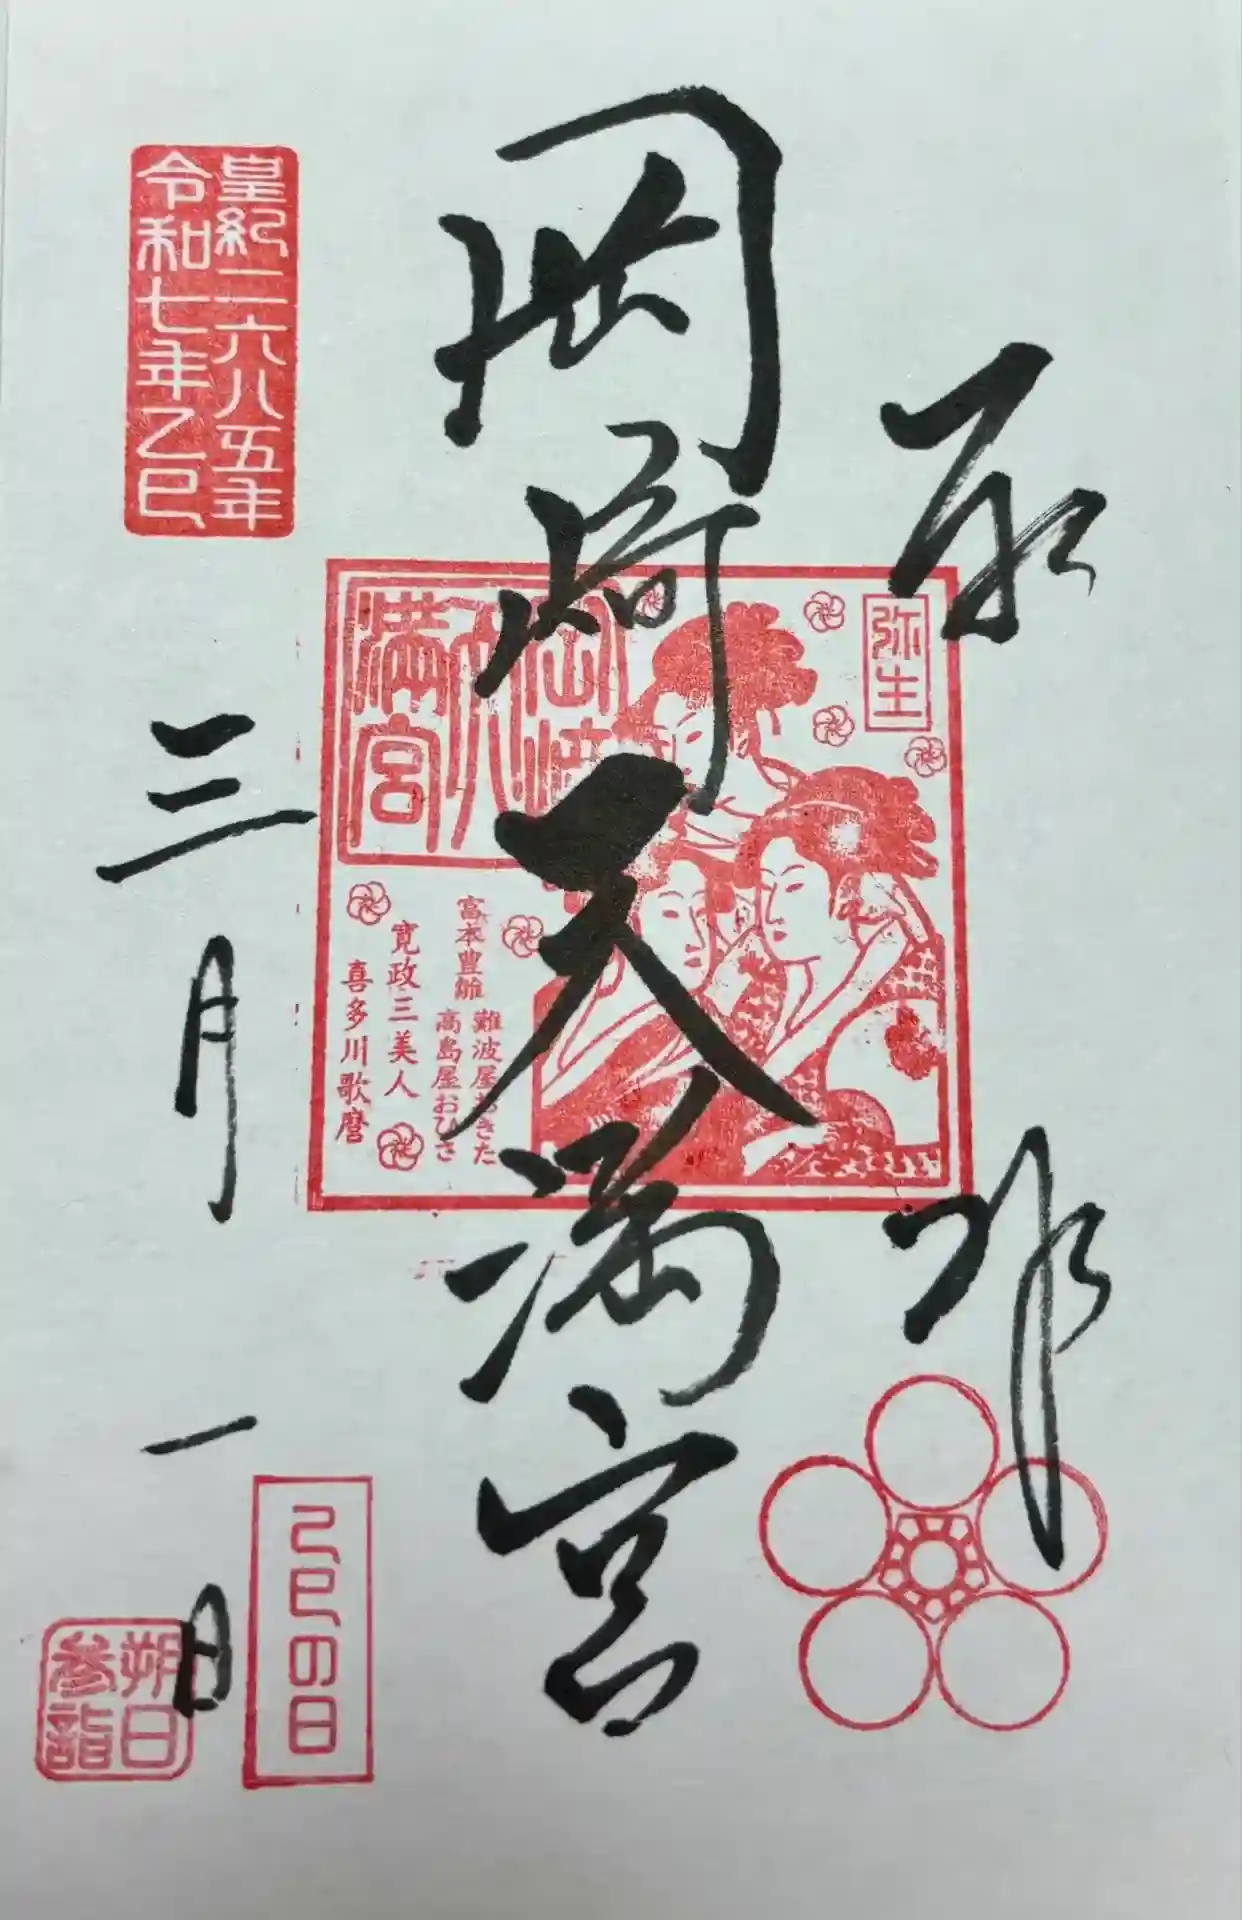 奉拝
岡崎天満宮
弥生
岡崎
天
満宮
難波屋おきた
富本豊雛
高島屋おひさ
寛政三美人
喜多川歌麿
皇紀二六八五年
令和七年乙巳
三月一日
乙巳の日
朔日
参詣